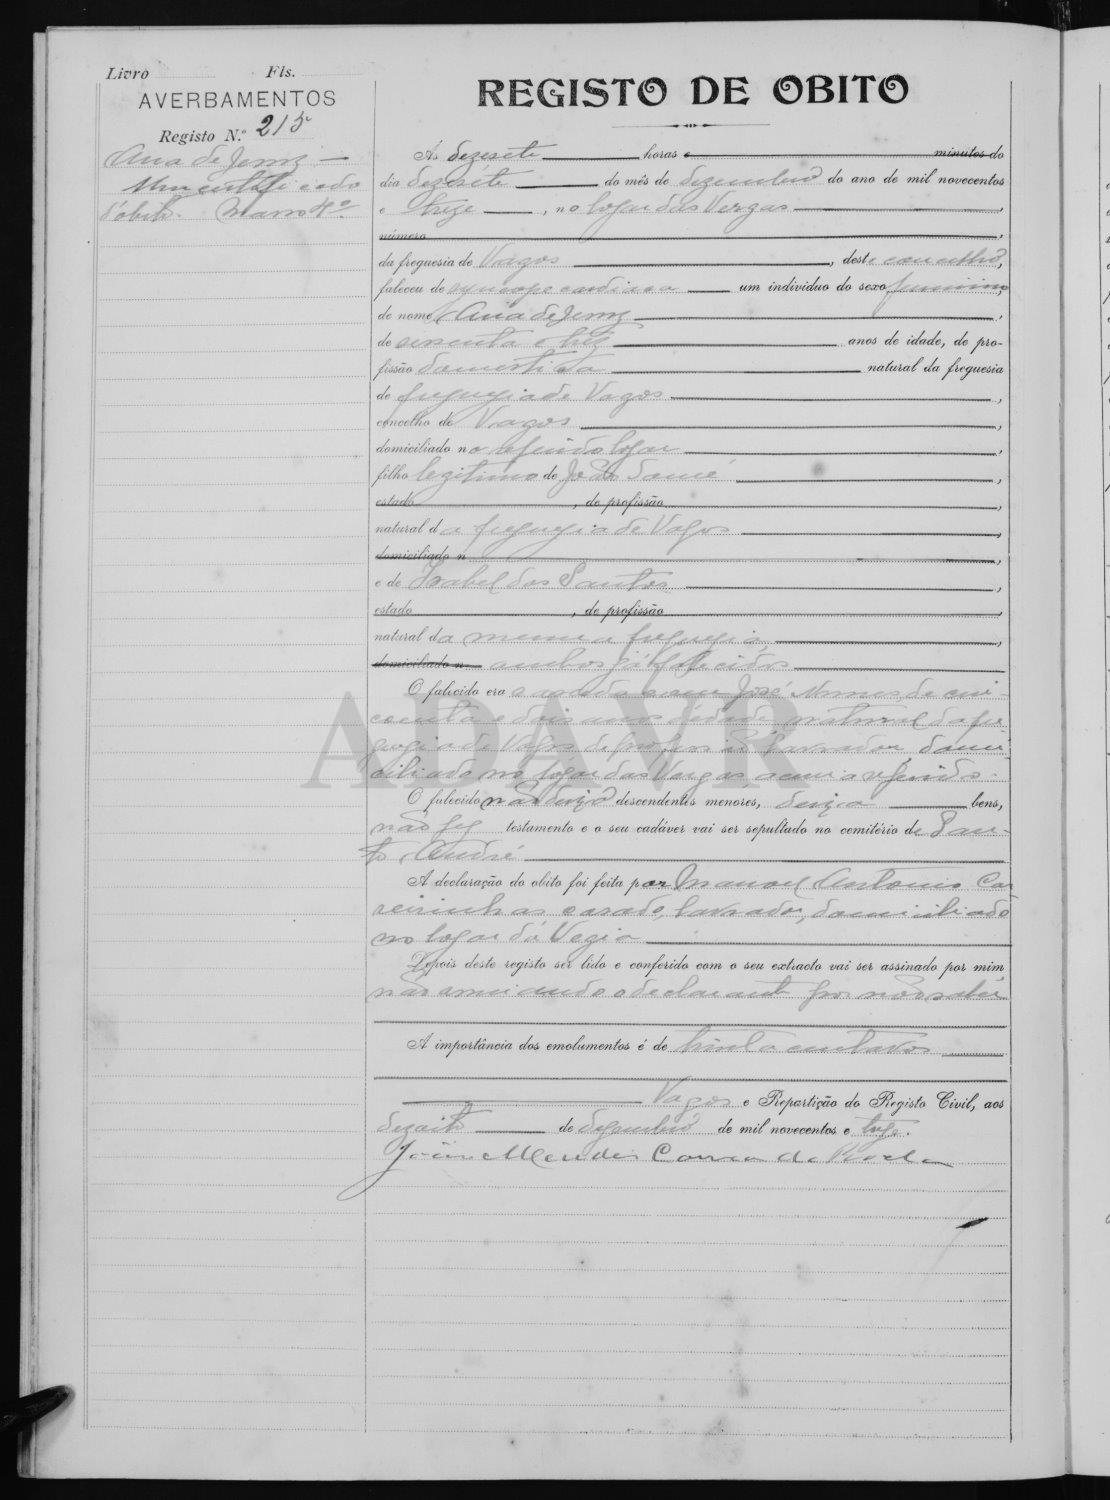 Livro Fls.
AVERBAMENTOS
Registo N.º 215
Ana de Jesus
Um certificado
d'obito. Masso 4º.
REGISTO DE OBITO
Ás dezesete horas e minutos do
dia dezesete do mês de dezembro do ano de mil novecentos
e treze, no logar das Vergas,
número,
da freguesia de Vagos, deste concelho,
faleceu de syncope cardiaca um individuo do sexo feminino,
de nome Ana de Jesus,
de sessenta e trez anos de idade, de pro-
fissão domestica natural da freguesia
de freguezia de Vagos,
concelho de Vagos,
domiciliado no referido logar,
filho legitimo de João,
estado, de profissão,
natural da freguezia de Vagos,
domiciliado n,
e de Izabel dos Santos,
estado, de profissão,
natural da mesma freguezia,
domiciliado n ambos já falecidos
O falecido era casada com José Nunes, de cin-
coenta e dois anos d'edade, natural da fre-
guezia de Vagos, de profissão lavrador, domi-
ciliado no logar das Vergas acima referido.
O falecido não deixa descendentes menores, deixa bens,
não fez testamento e o seu cadáver vai ser sepultado no cemitério de San-
to André
A declaração do obito foi feita por Manoel Antonio
casado, lavrador, domiciliado
no logar da
Depois deste registo ser lido e conferido com o seu extracto vai ser assinado por mim
não assinando o declarante por não saber
A importância dos emolumentos é de trinta centavos
Vagos e Repartição do Registo Civil, aos
dezoito de dezembro de mil novecentos e treze.
João Mendes Correa da Rocha
ADAVR